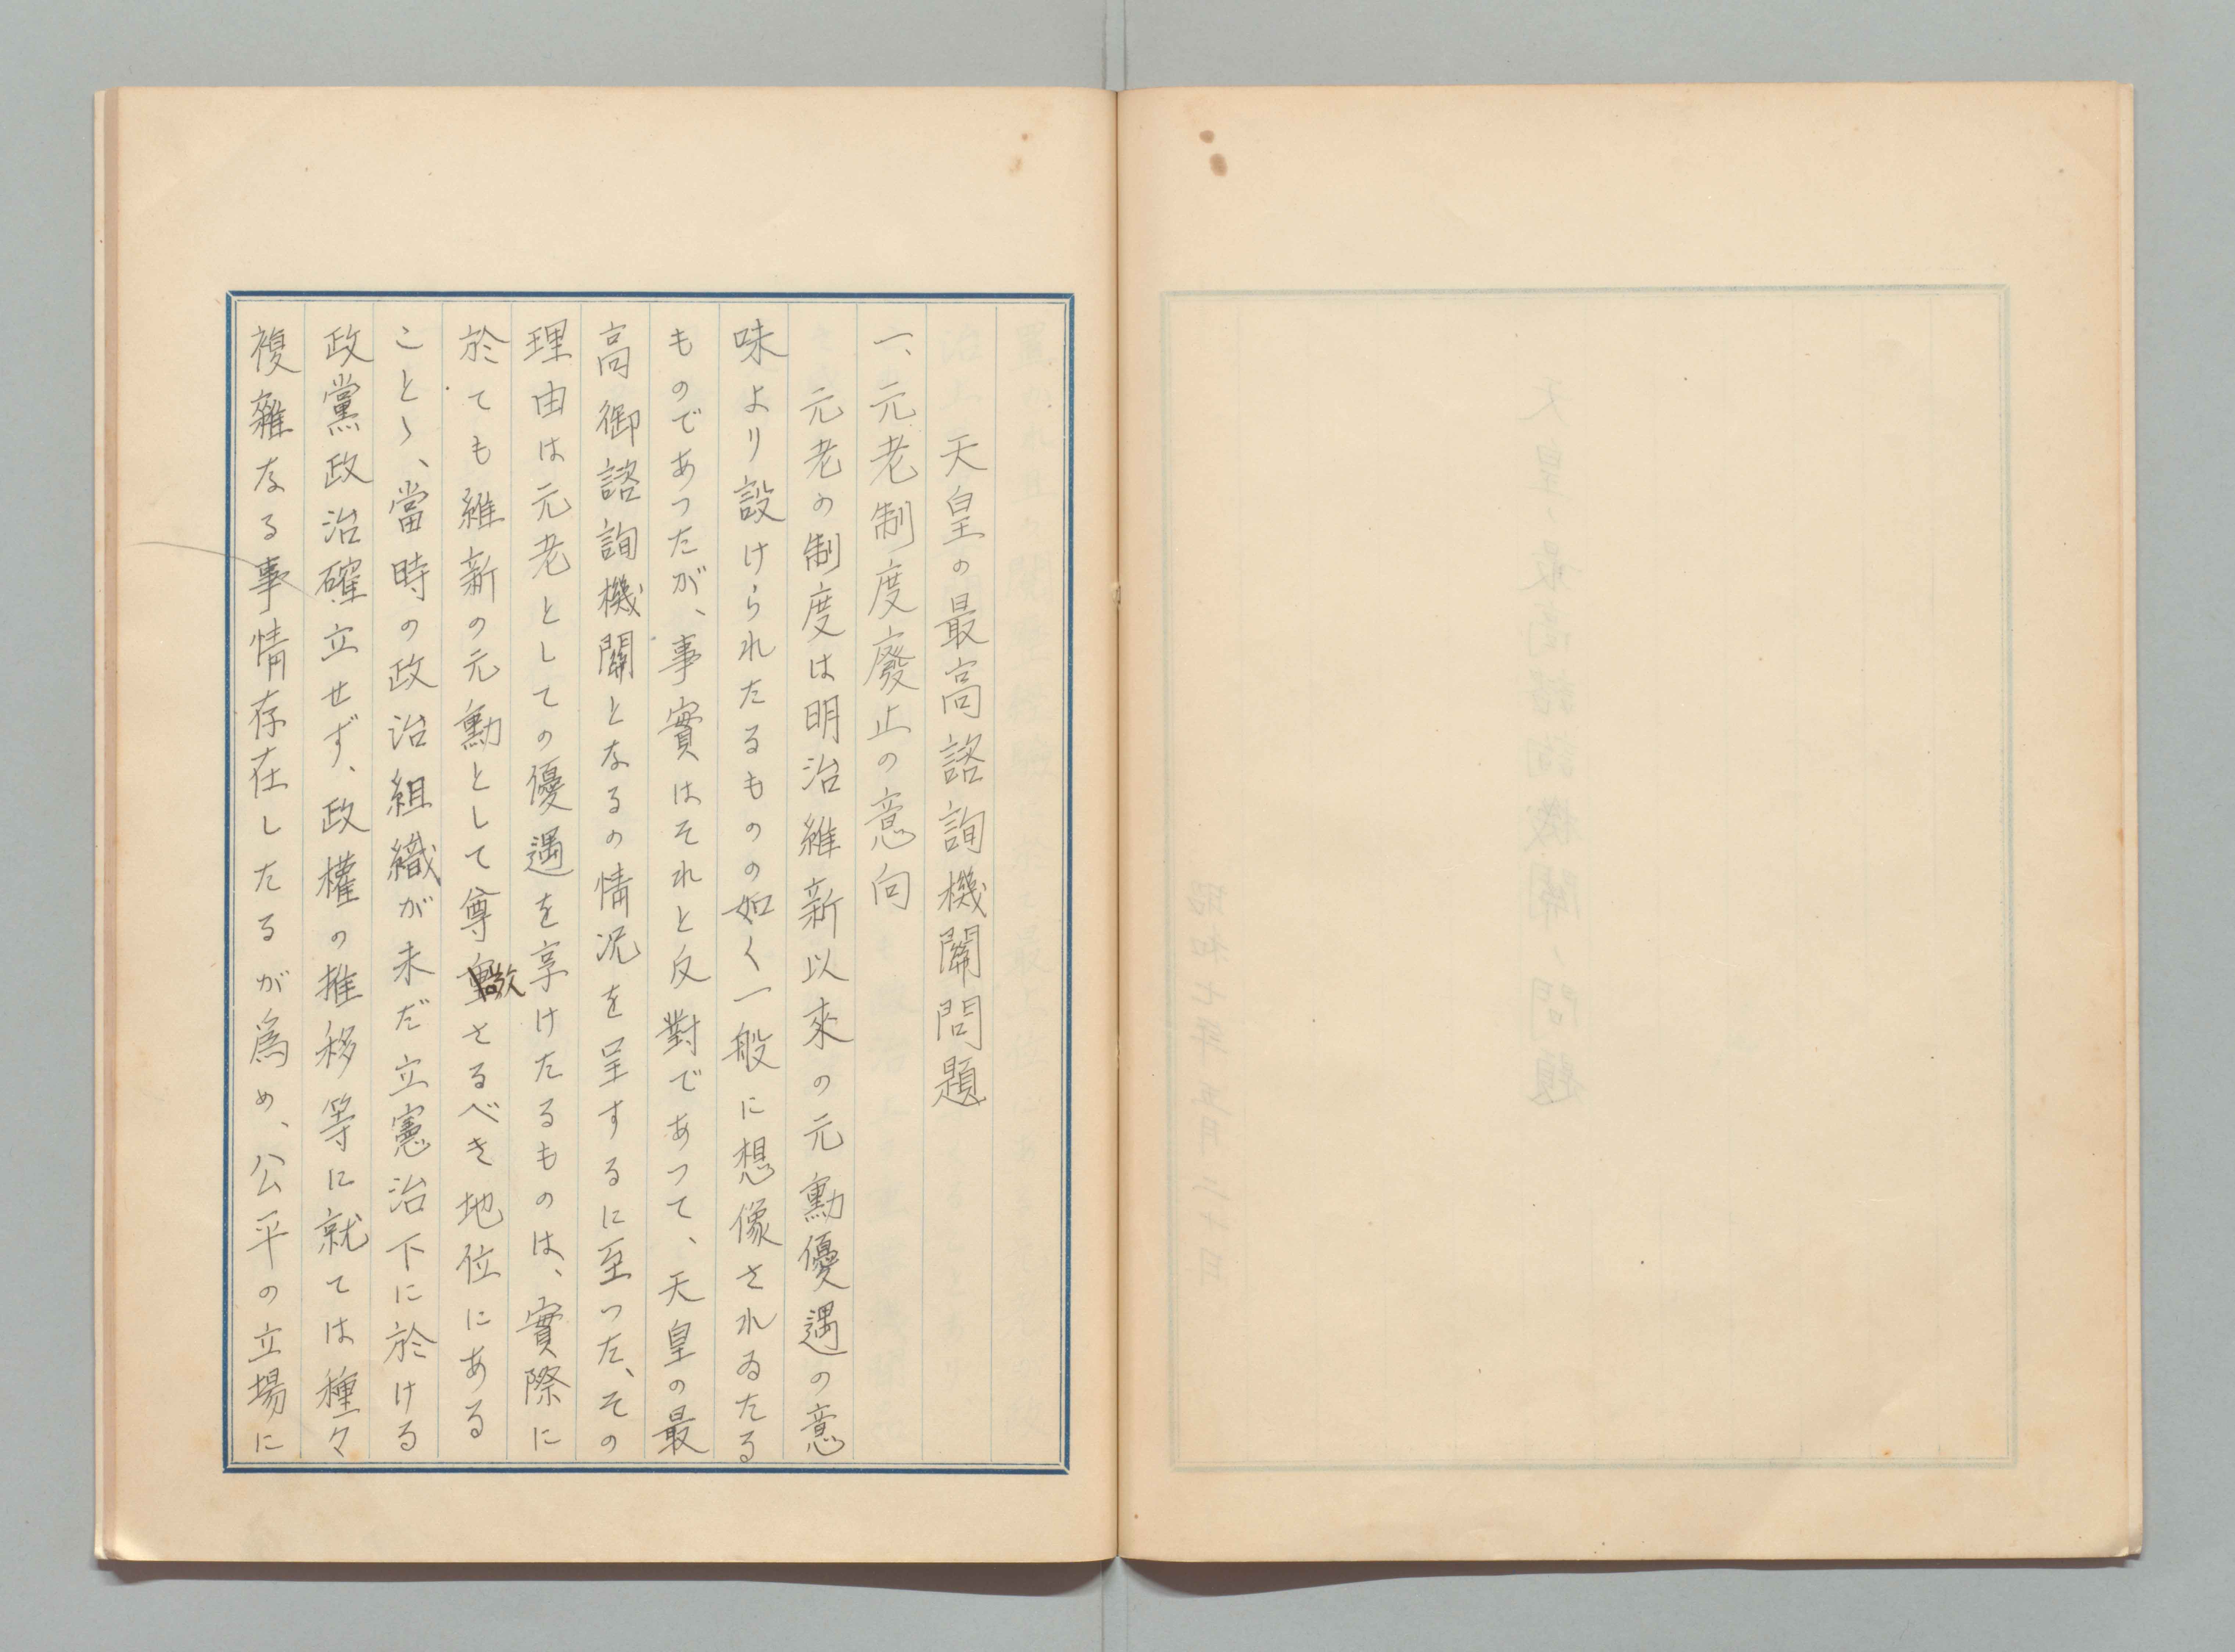 天皇の最高諮詢機關問題
一、元老制度廢止の意向
元老の制度は明治維新以來の元勳優遇の意
味より設けられたるものの如く一般に想像されゐたる
ものであつたが、事實はそれと反對であつて、天皇の最
高御諮詢機關となるの情況を呈するに至つた、その
理由は元老としての優遇を享けたるものは、實際に
於ても維新の元勳として尊敬さるべき地位にある
ことゝ、當時の政治組織が未だ立憲治下に於ける
政黨政治確立せず、政權の推移等に就ては種々
複雜なる事情存在したるが爲め、公平の立場に